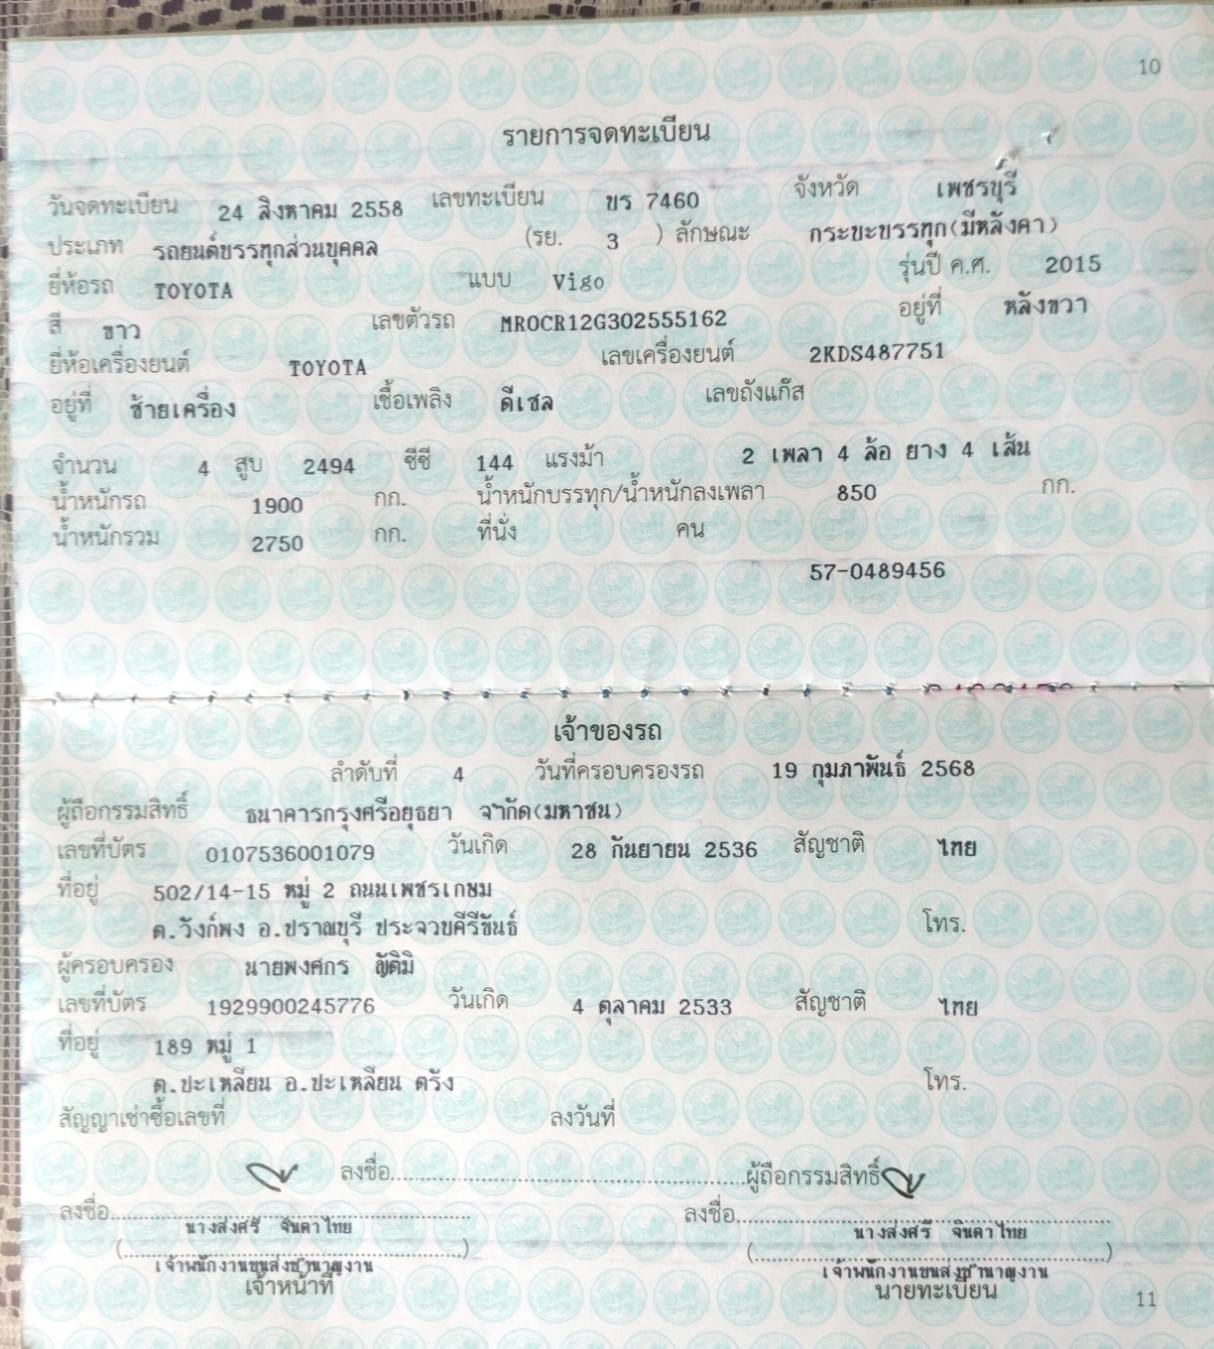 10
รายการจดทะเบียน
วันจดทะเบียน 24 สิงหาคม 2558 เลขทะเบียน บร 7460 จังหวัด เพชรบุรี
ประเภท รถยนต์บรรทุกส่วนบุคคล (รย. 3 ) ลักษณะ กระบะบรรทุก(มีหลังคา)
ยี่ห้อรถ TOYOTA แบบ Vigo รุ่นปี ค.ศ. 2015
สี ขาว เลขตัวรถ MR0CR12G302555162 อยู่ที่ หลังขวา
ยี่ห้อเครื่องยนต์ TOYOTA เลขเครื่องยนต์ 2KDS487751
อยู่ที่ ซ้ายเครื่อง เชื้อเพลิง ดีเซล เลขถังแก๊ส
จำนวน 4 สูบ 2494 ซีซี 144 แรงม้า 2 เพลา 4 ล้อ ยาง 4 เส้น
น้ำหนักรถ 1900 กก. น้ำหนักบรรทุก/น้ำหนักลงเพลา 850 กก.
น้ำหนักรวม 2750 กก. ที่นั่ง คน
57-0489456
เจ้าของรถ
ลำดับที่ 4 วันที่ครอบครองรถ 19 กุมภาพันธ์ 2568
ผู้ถือกรรมสิทธิ์ ธนาคารกรุงศรีอยุธยา จำกัด(มหาชน)
เลขที่บัตร 0107536001079 วันเกิด 28 กันยายน 2536 สัญชาติ ไทย
ที่อยู่ 502/14-15 หมู่ 2 ถนนเพชรเกษม
ต.วังก์พง อ.ปราณบุรี ประจวบคีรีขันธ์ โทร.
ผู้ครอบครอง นายพงศกร
เลขที่บัตร 1929900245776 วันเกิด 4 ตุลาคม 2533 สัญชาติ ไทย
ที่อยู่ 189 หมู่ 1
ต.ปะเหลียน อ.ปะเหลียน ตรัง โทร.
สัญญาเช่าซื้อเลขที่ ลงวันที่
ลงชื่อ.................................................ผู้ถือกรรมสิทธิ์
ลงชื่อ................................................. ลงชื่อ.................................................
นางส่งศรี จินดาไทย นางส่งศรี จินดาไทย
(.................................................) (.................................................)
เจ้าพนักงานขนส่งชำนาญงาน เจ้าพนักงานขนส่งชำนาญงาน
เจ้าหน้าที่ นายทะเบียน
11